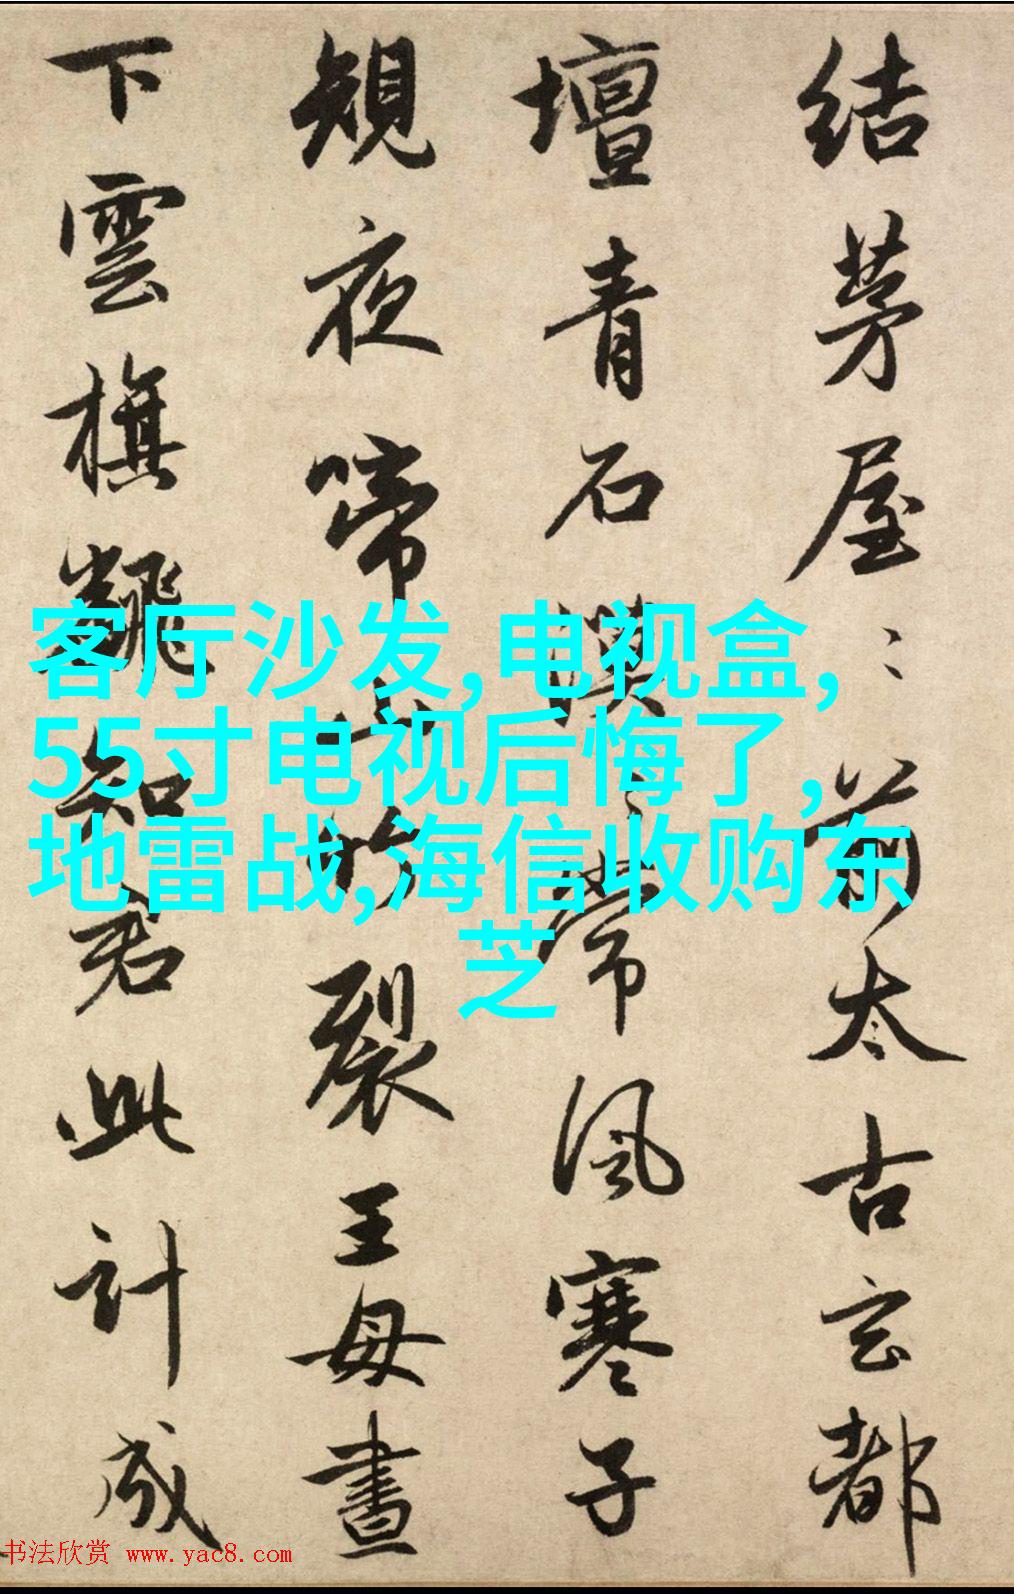 結茅屋〻前太古玄都
壇青石漠〻常風寒子
規夜啼山竹裂王母晝
下雲旗飜知君此計成
客厅沙发,电视盒,
55寸电视后悔了,
地雷战,海信收购东
芝
书法欣赏 www.yac8.com